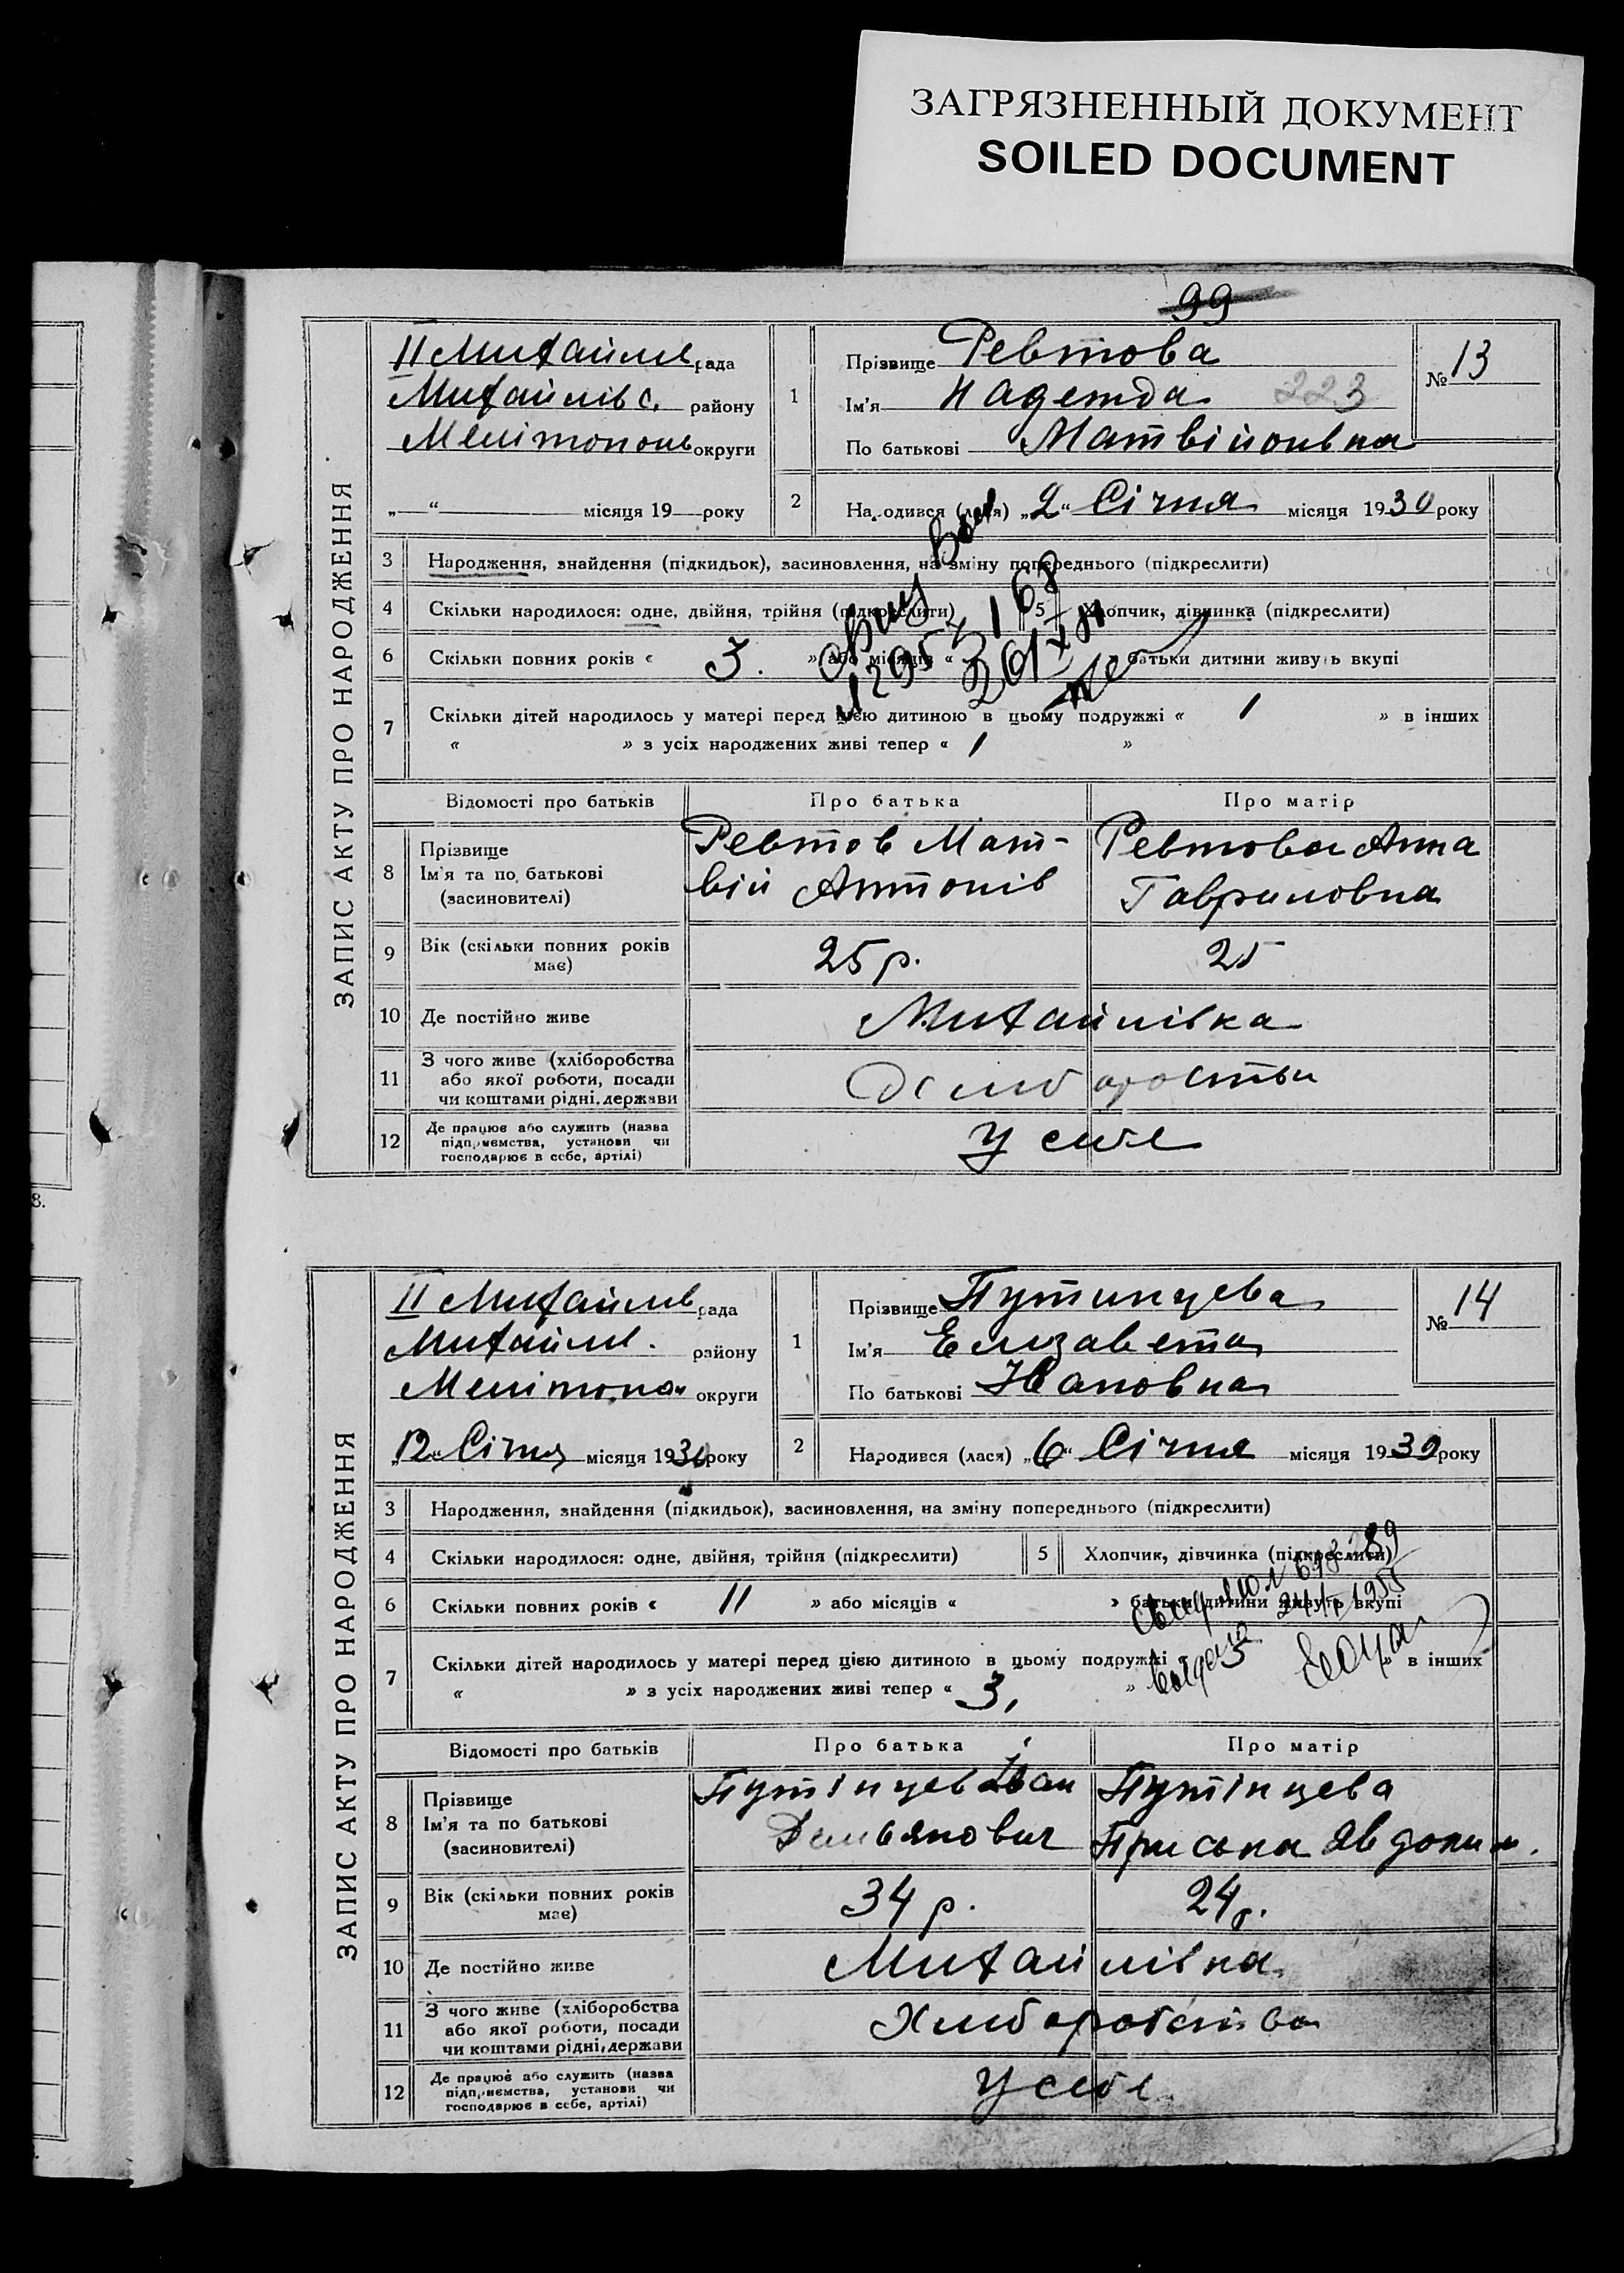 ЗАГРЯЗНЕННЫЙ ДОКУМЕНТ
SOILED DOCUMENT
99
ЗАПИС АКТУ ПРО НАРОДЖЕННЯ
II Михайлів рада
Михайлівс. району
Мелітополь округи
„ “ місяця 19 року
1
Прізвище Ревтова
Ім'я Надежда 223
По батькові Матвійовна
№ 13
2
Народився (лася) „2“ Січня місяця 1930 року
3 Народження, знайдення (підкидьок), засиновлення, на зміну попереднього (підкреслити)
4 Скільки народилося: одне, двійня, трійня (підкреслити) 5 Хлопчик, дівчинка (підкреслити)
6 Скільки повних років « 5. » або місяців « » батьки дитини живуть вкупі
7 Скільки дітей народилось у матері перед цією дитиною в цьому подружжі « 1 » в інших
« » з усіх народжених живі тепер « 1 »
Відомості про батьків Про батька Про матір
8 Прізвище
Ім'я та по батькові
(засиновителі)
Ревтов Мат-
вій Антонів
Ревтова Анна
Гавриловна
9 Вік (скільки повних років
має)
25 р. 25
10 Де постійно живе Михайлівка
11 З чого живе (хліборобства
або якої роботи, посади
чи коштами рідні, держави
12 Де працює або служить (назва
підприємства, установи чи
господарює в себе, артілі)
У себе
ЗАПИС АКТУ ПРО НАРОДЖЕННЯ
II Михайлів рада
Михайлів. району
Мелітопол округи
„12“ Січня місяця 1930 року
1
Прізвище Путинцева
Ім'я Елизавета
По батькові Ивановна
№ 14
2
Народився (лася) „6“ Січня місяця 1930 року
3 Народження, знайдення (підкидьок), засиновлення, на зміну попереднього (підкреслити)
4 Скільки народилося: одне, двійня, трійня (підкреслити) 5 Хлопчик, дівчинка (підкреслити)
6 Скільки повних років « 11 » або місяців « » батьки дитини живуть вкупі
7 Скільки дітей народилось у матері перед цією дитиною в цьому подружжі « 3 » в інших
« » з усіх народжених живі тепер « 3, »
Відомості про батьків Про батька Про матір
8 Прізвище
Ім'я та по батькові
(засиновителі)
Путінцев Іван
Демьянович
Путінцева
Приська Явдоким.
9 Вік (скільки повних років
має)
34 р. 24 р.
10 Де постійно живе Михайлівка
11 З чого живе (хліборобства
або якої роботи, посади
чи коштами рідні, держави
Хліборобства
12 Де працює або служить (назва
підприємства, установи чи
господарює в себе, артілі)
У себе